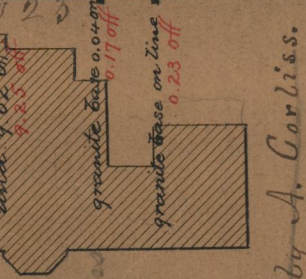 23
9.25 off
granite base 0.04 on
0.17 off
granite base on line
0.23 off
by A. Corliss.